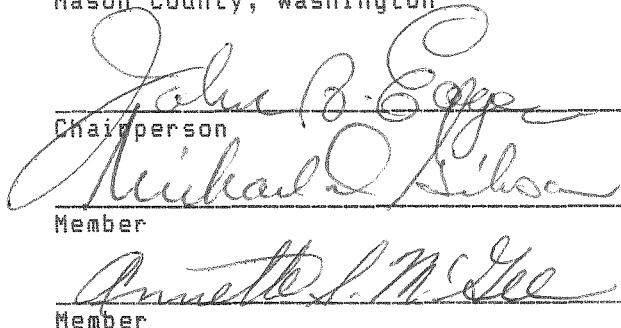 Mason County, Washington
John B. Egge
Chairperson
Michael D Gibson
Member
Annette S. McGee
Member